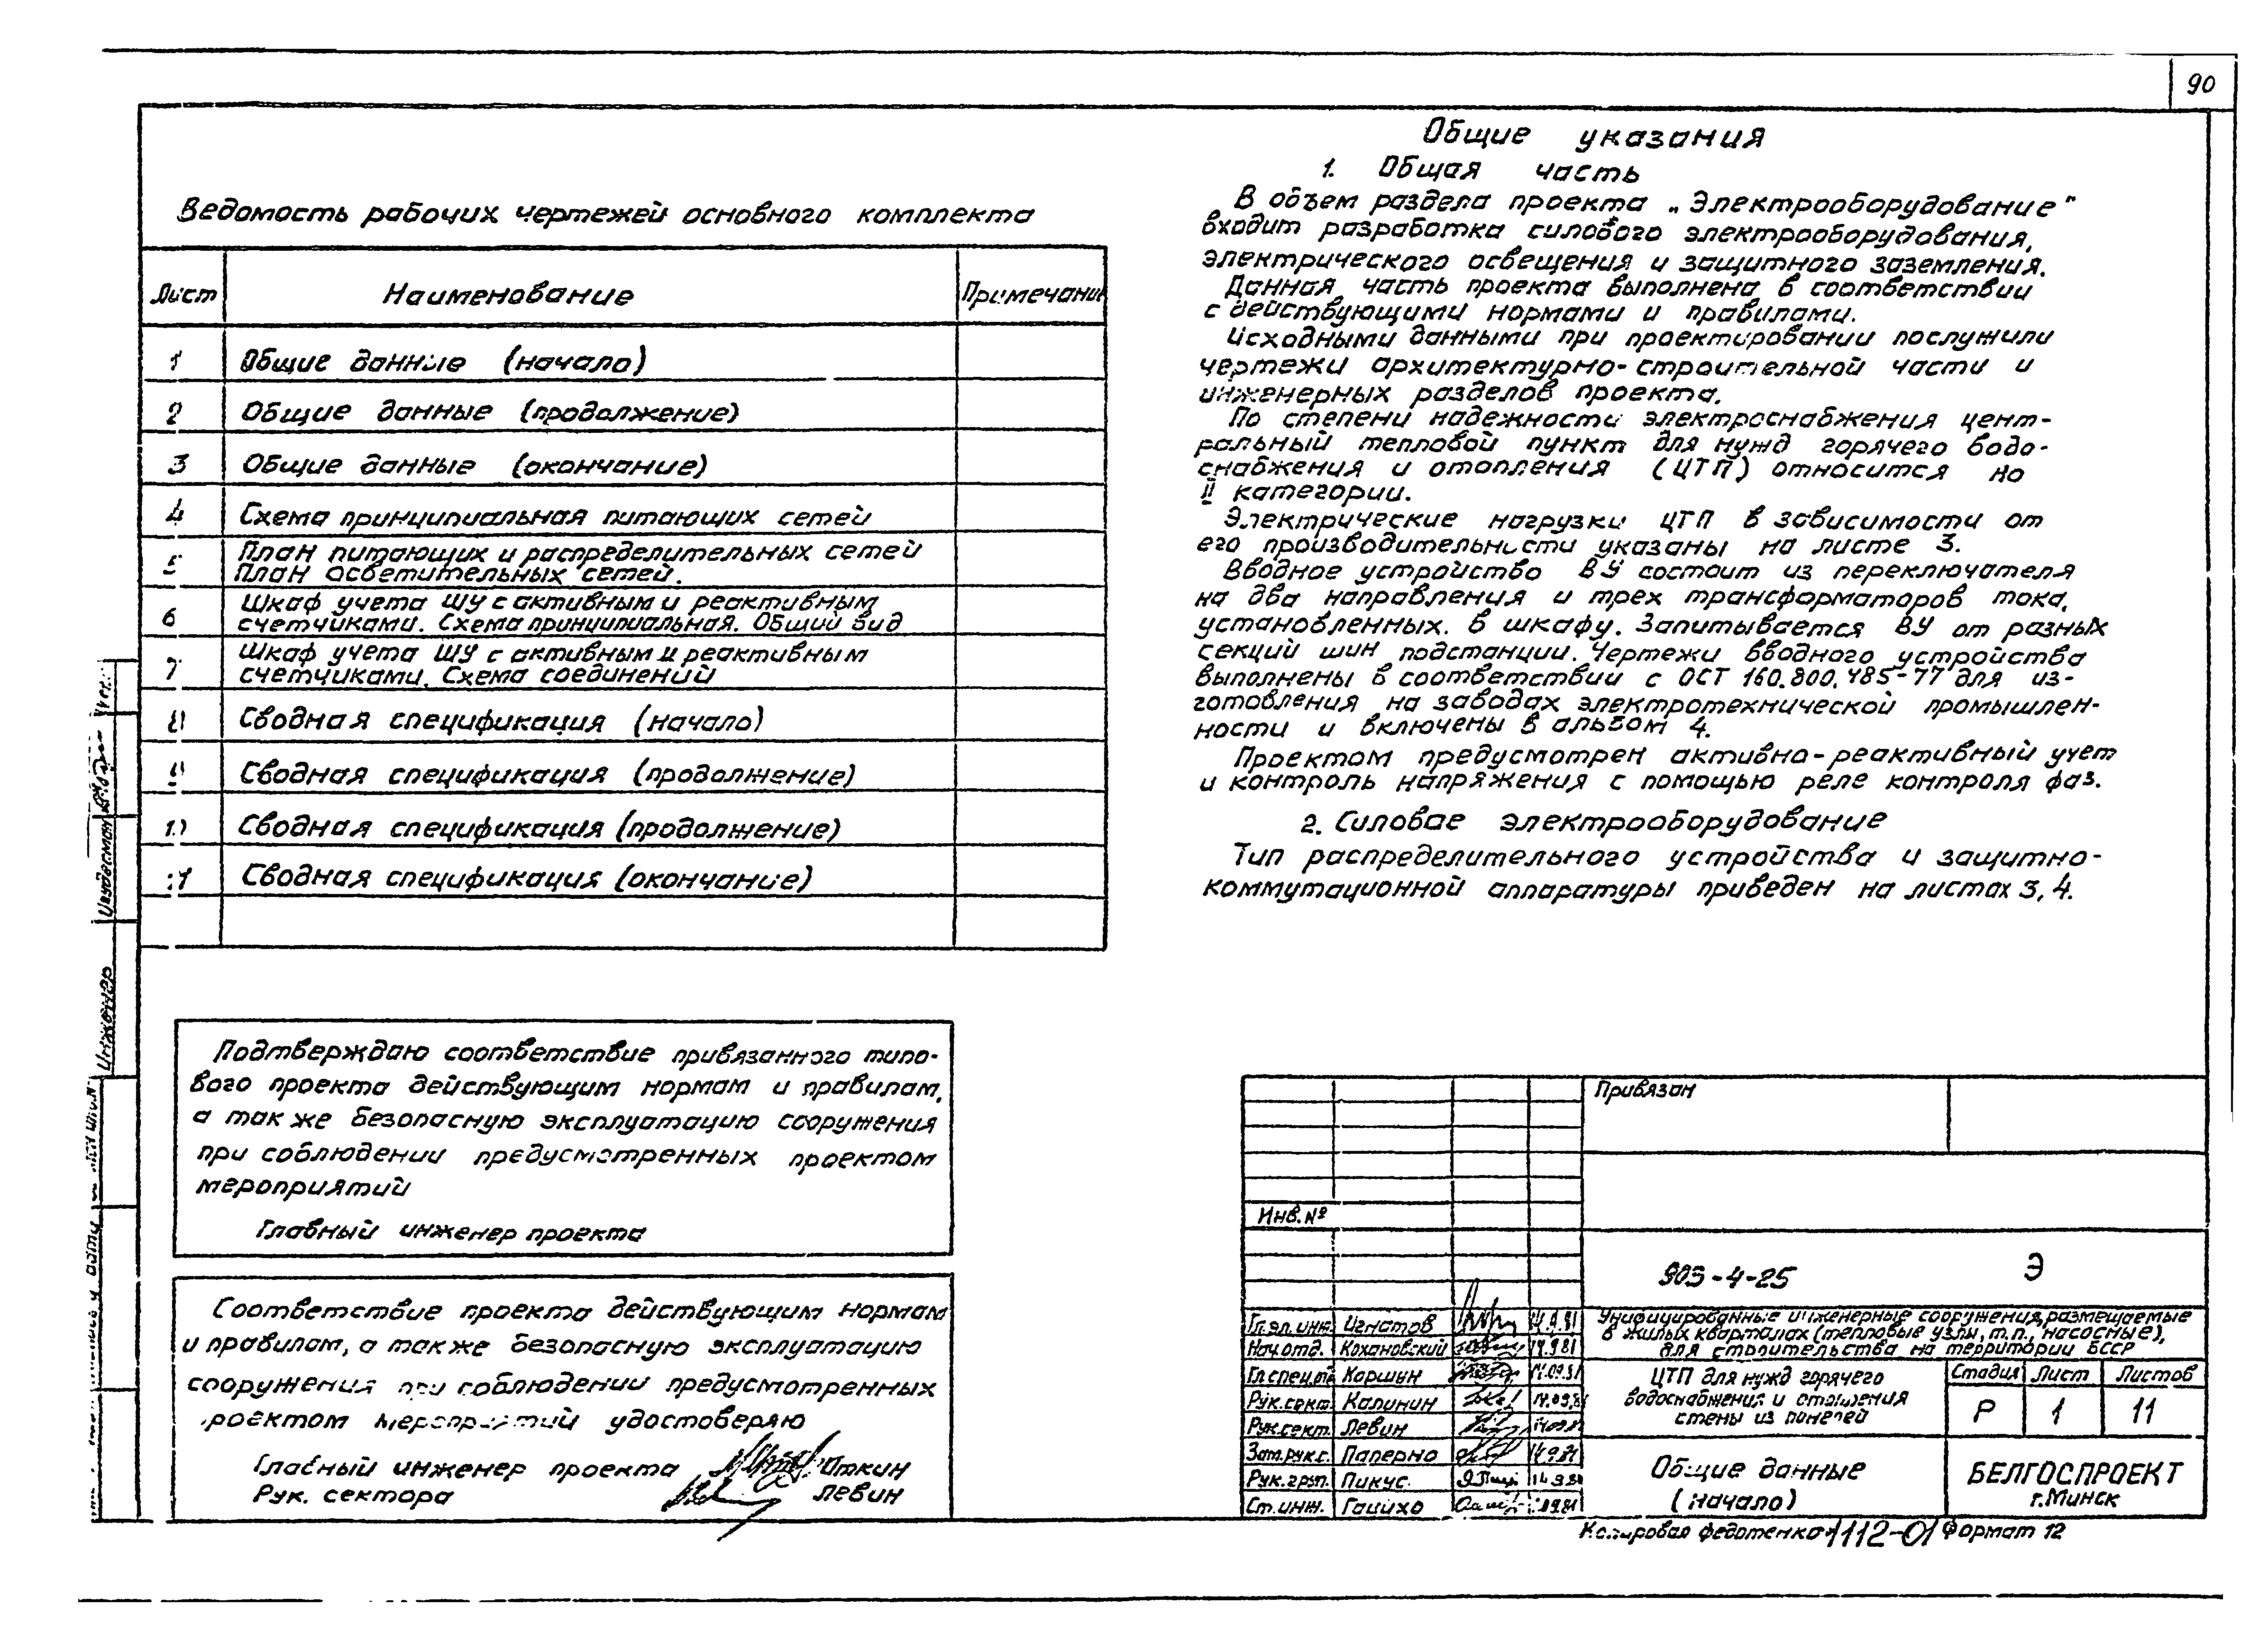 90
Ведомость рабочих чертежей основного комплекта
Лист Наименование Примечание
1 Общие данные (начало)
2 Общие данные (продолжение)
3 Общие данные (окончание)
4 Схема принципиальная питающих сетей
5 План питающих и распределительных сетей
План осветительных сетей.
6 Шкаф учета ШУ с активным и реактивным
счетчиками. Схема принципиальная. Общий вид
7 Шкаф учета ШУ с активным и реактивным
счетчиками. Схема соединений
8 Сводная спецификация (начало)
9 Сводная спецификация (продолжение)
10 Сводная спецификация (продолжение)
11 Сводная спецификация (окончание)
Подтверждаю соответствие привязанного типо-
вого проекта действующим нормам и правилам,
а так же безопасную эксплуатацию сооружения
при соблюдении предусмотренных проектом
мероприятий
Главный инженер проекта
Соответствие проекта действующим нормам
и правилам, а также безопасную эксплуатацию
сооружения при соблюдении предусмотренных
проектом мероприятий удостоверяю
Главный инженер проекта Иткин
Рук. сектора Левин
Общие указания
1. Общая часть
В объем раздела проекта „Электрооборудование"
входит разработка силового электрооборудования,
электрического освещения и защитного заземления.
Данная часть проекта выполнена в соответствии
с действующими нормами и правилами.
Исходными данными при проектировании послужили
чертежи архитектурно-строительной части и
инженерных разделов проекта.
По степени надежности электроснабжения цент-
ральный тепловой пункт для нужд горячего водо-
снабжения и отопления (ЦТП) относится ко
II категории.
Электрические нагрузки ЦТП в зависимости от
его производительности указаны на листе 3.
Вводное устройство ВУ состоит из переключателя
на два направления и трех трансформаторов тока,
установленных. в шкафу. Запитывается ВУ от разных
секций шин подстанции. Чертежи вводного устройства
выполнены в соответствии с ОСТ 160.800.485-77 для из-
готовления на заводах электротехнической промышлен-
ности и включены в альбом 4.
Проектом предусмотрен активно-реактивный учет
и контроль напряжения с помощью реле контроля фаз.
2. Силовое электрооборудование
Тип распределительного устройства и защитно-
коммутационной аппаратуры приведен на листах 3, 4.
Привязан
Инв. №
903-4-25 Э
Гл.эл.инж. Игнатов 14.9.81
Нач.отд. Кохановский 14.9.81
Гл.спец.от Каршун 14.09.81
Рук.сект. Калинин 14.09.81
Рук.сект. Левин 14.09.81
Зам.рук.с. Паперно 14.9.81
Рук.груп. Пикус 14.9.81
Ст.инж. Гаийхо
Унифицированные инженерные сооружения, размещаемые
в жилых кварталах (тепловые узлы, т.п., насосные),
для строительства на территории БССР
ЦТП для нужд горячего
водоснабжения и отопления
стены из панелей
Стадия Лист Листов
Р 1 11
Общие данные
(начало)
БЕЛГОСПРОЕКТ
г.Минск
Копировал Федотенко 1112-01 Формат 12
Инженер